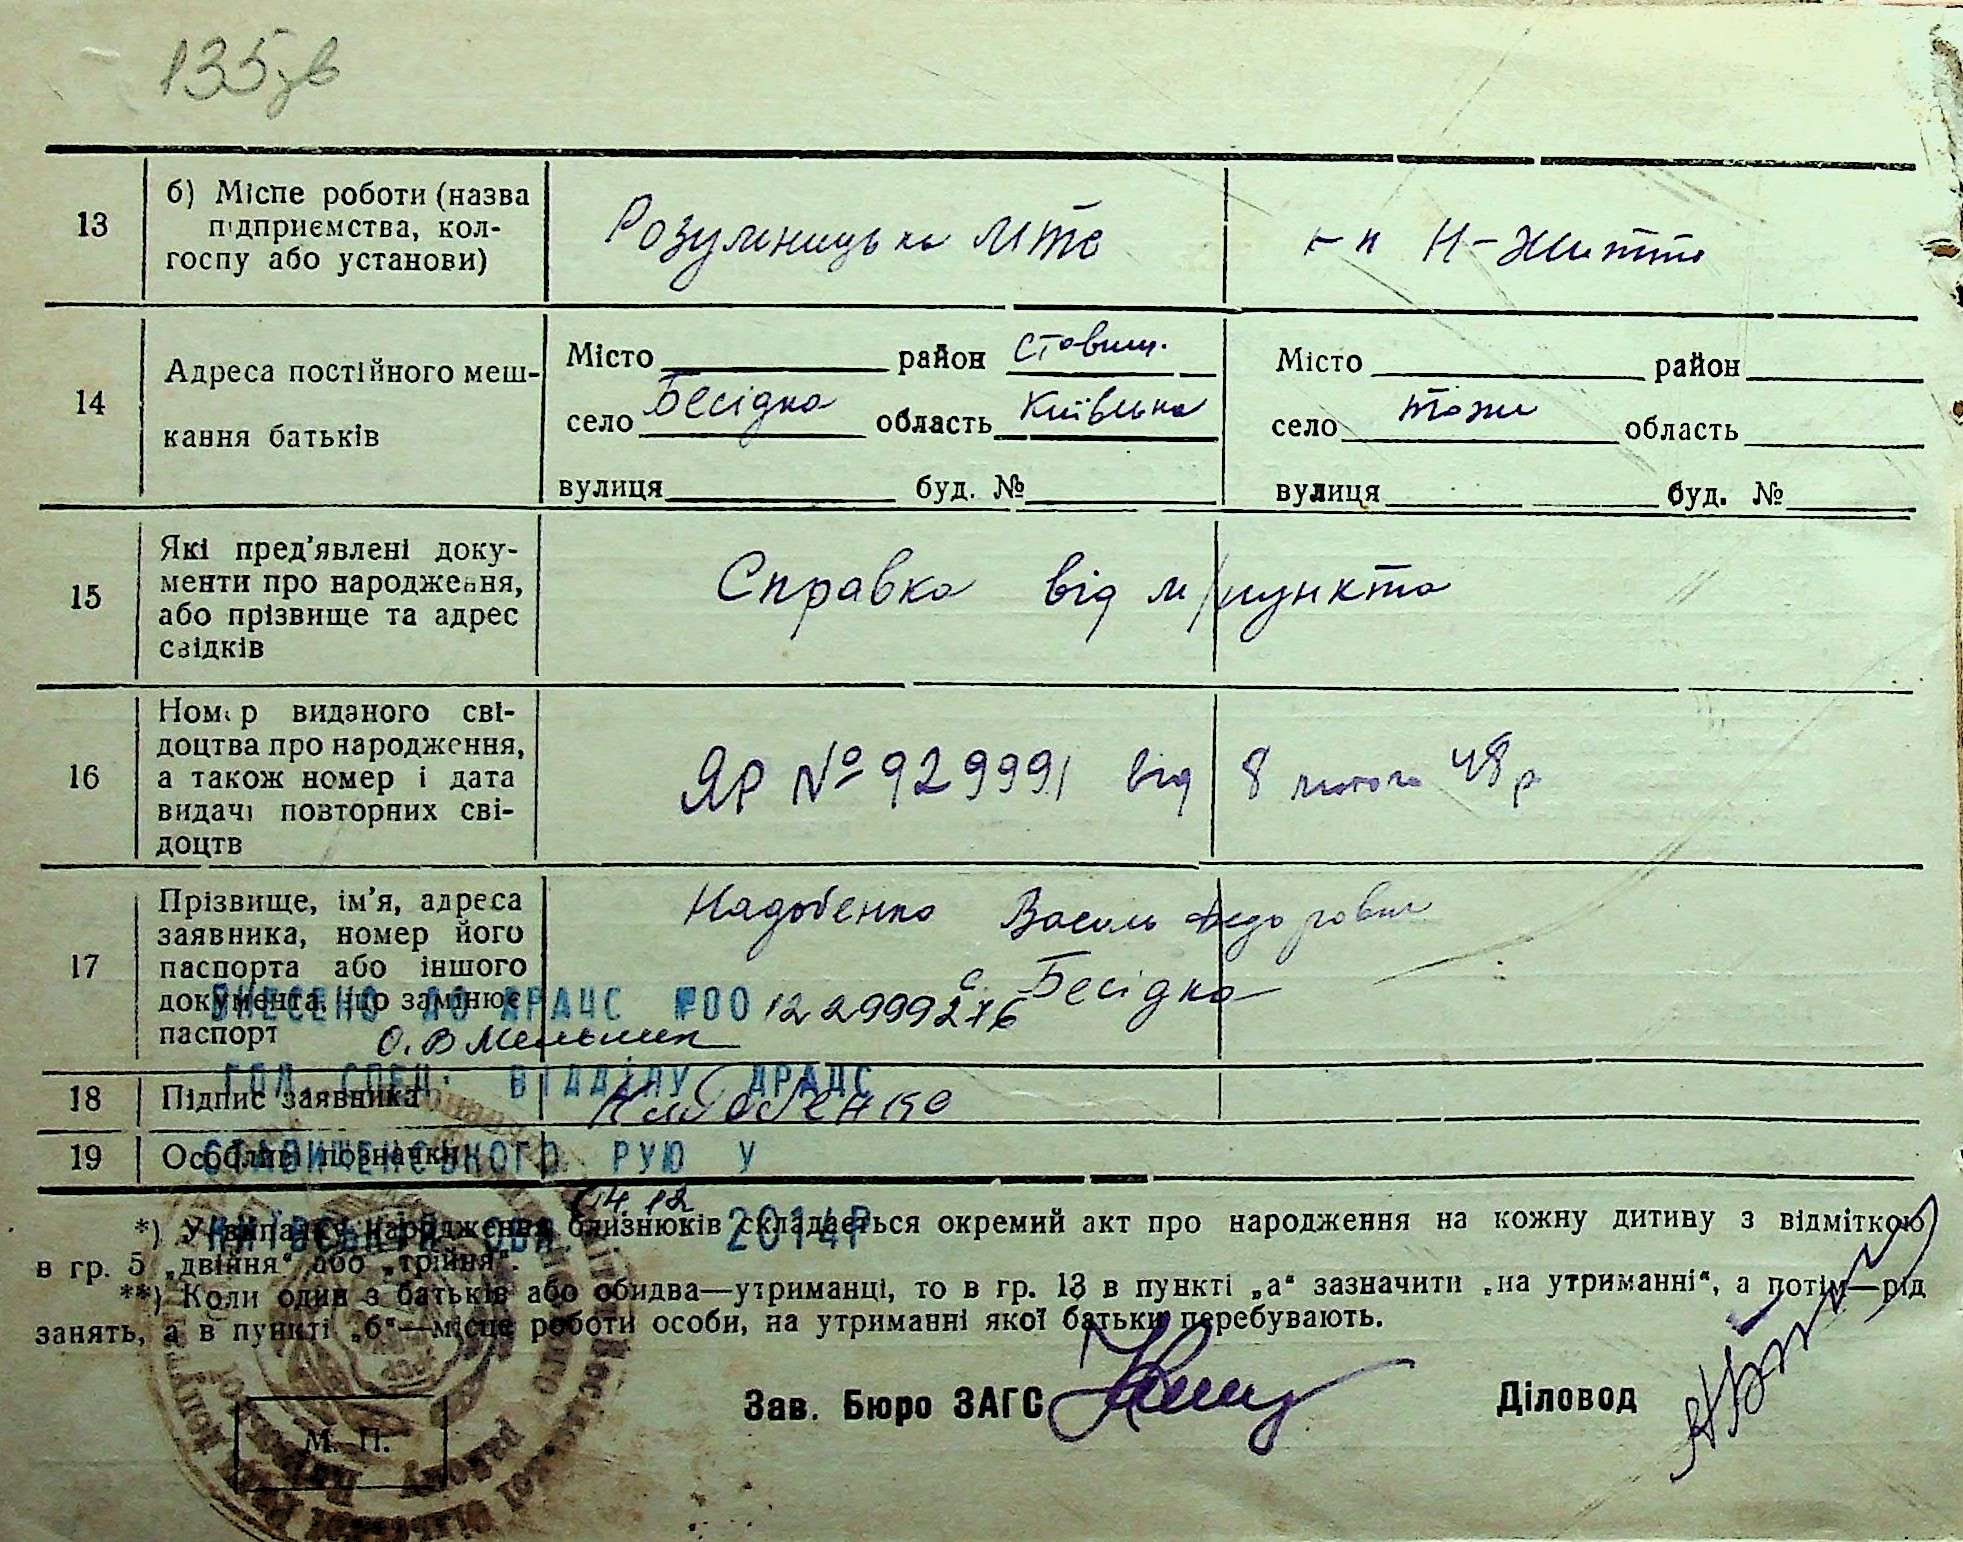 135зв
13
б) Місце роботи (назва
підприємства, кол-
госпу або установи)
Розумницька МТС
к-п Н-Життя
14
Адреса постійного меш-
кання батьків
Місто район Ставищ.
село Бесідка область Київська
вулиця буд. №
Місто район
село тоже область
вулиця буд. №
15
Які пред'явлені доку-
менти про народження,
або прізвище та адрес
свідків
Справка від м/пункта
16
Номер виданого сві-
доцтва про народження,
а також номер і дата
видачі повторних сві-
доцтв
ЯР № 929991 від 8 лютого 48 р
17
Прізвище, ім'я, адреса
заявника, номер його
паспорта або іншого
документа, що замінює
паспорт
Надобенко Василь Федорович
с. Бесідка
ВНЕСЕНО ДО ДРАЦС №00 122999276
О.В Мельник
ГОЛ. СПЕЦ. ВІДДІЛУ ДРАЦС
18
Підпис заявника
Надобенко
СТАВИЩЕНСЬКОГО РУЮ У
19
Особливі позначки
КИЇВСЬКІЙ ОБЛ. 04.12 2014Р
*) У випадку народження близнюків складається окремий акт про народження на кожну дитину з відміткою
в гр. 5 „двійня“ або „трійня“.
**) Коли один з батьків або обидва—утриманці, то в гр. 13 в пункті „а“ зазначити „на утриманні“, а потім—рід
занять, а в пункті „б“—місце роботи особи, на утриманні якої батьки перебувають.
Зав. Бюро ЗАГС
Діловод
М. П.